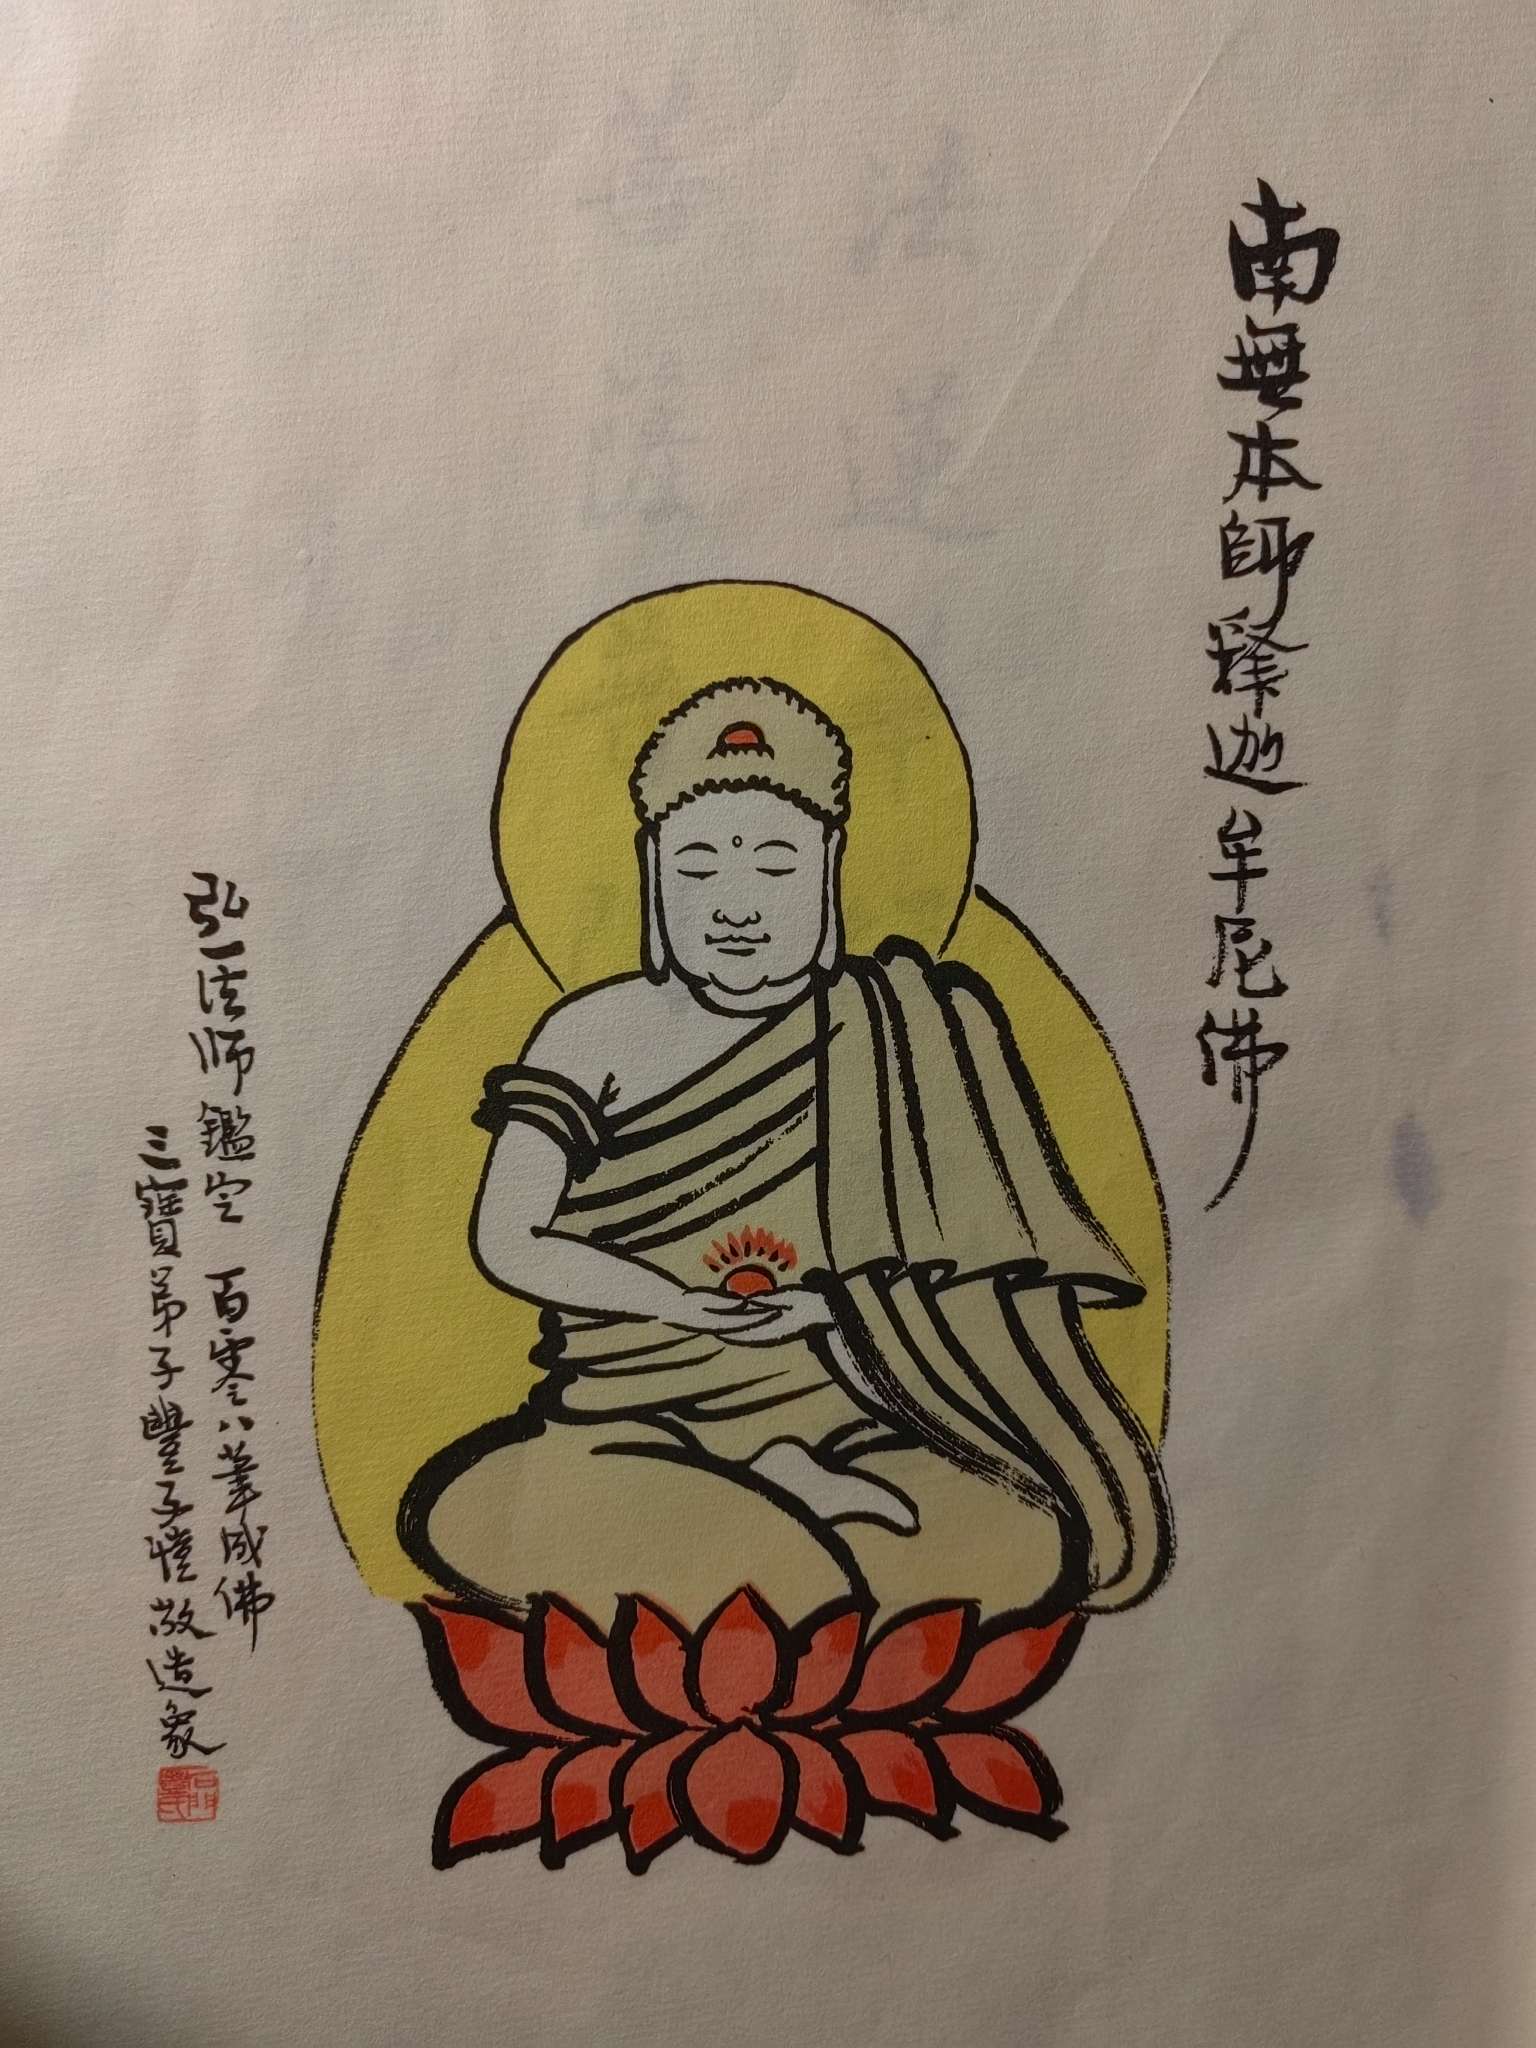 南無本師釋迦牟尼佛
弘一法师鑑定 百零八筆成佛
三寶弟子豐子愷敬造象
石門豐氏